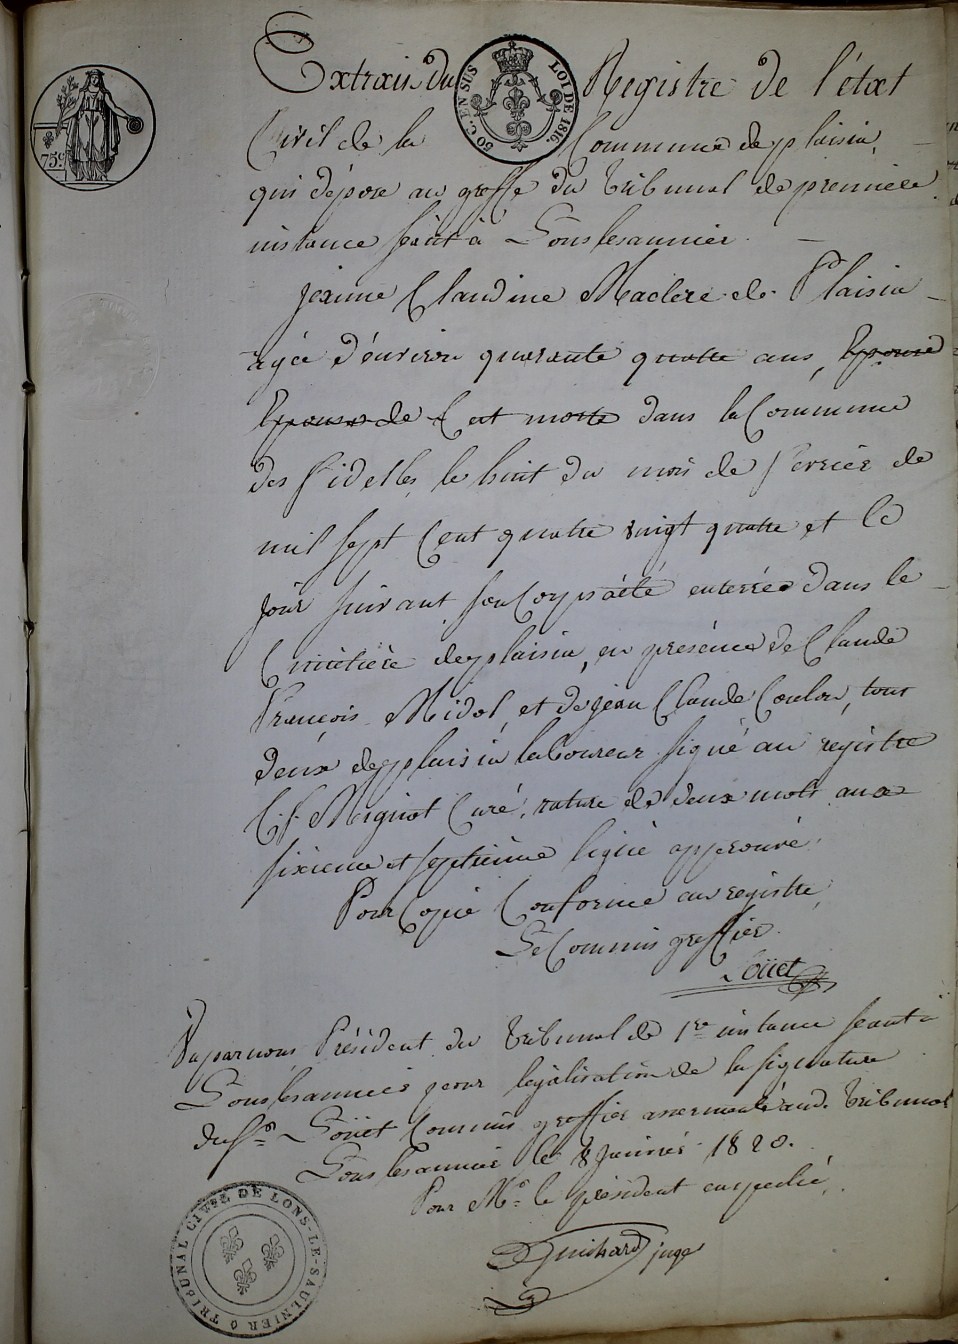 Extrait du Registre de l'état
50 C. EN SUS LOI DE 1816.
75 c.
Civil de la Commune de plaisia,
qui dépose au greffe du tribunal de premiere
instance séant à Lonslesaunier.
jeanne Claudine Maclere de Plaisia
agée d'environ quarante quatre ans, Epouse
Epouse de C est morte dans la Commune
des fidelles, le huit du mois de fevrier de
mil sept Cent quatre vingt quatre et le
jour suivant son Corps a été enterrée dans le
Cimètière de plaisia, en présence de Claude
François Midol, et de jean Claude Coulon, tout
deux de plaisia laboureur signé au registre
C. f. Mignot Curé, rature de deux mots aux
sixieme et septième ligne approuvé.
Pour Copie Conforme au registre,
Le Commis greffier
Loüet
Vu par nous Président du tribunal de 1re instance séant à
Lonslesaunier pour légalisation de la signature
du Sr Loüet Commis greffier assermenté aud. tribunal
Lonslesaunier le 8 Janvier 1820.
Pour Mr le président empeché,
Guichard juge
TRIBUNAL CIVIL DE LONS-LE-SAULNIER